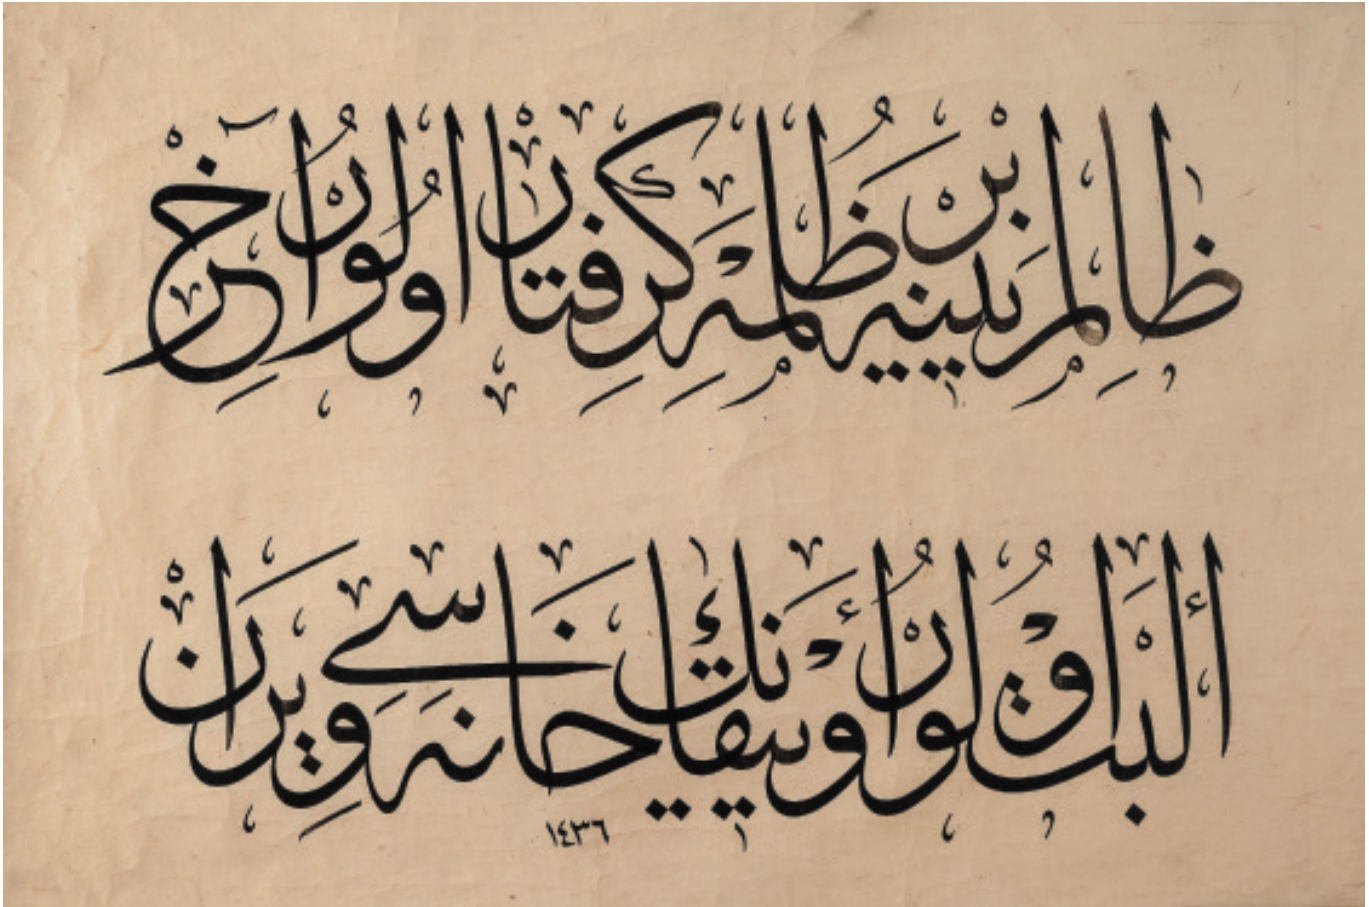 ظالِم يينه بر ظُلمه گرفتار اولور آخر
ألبت اولور أو ييقانك خانه سي ويران
١٤٣٦